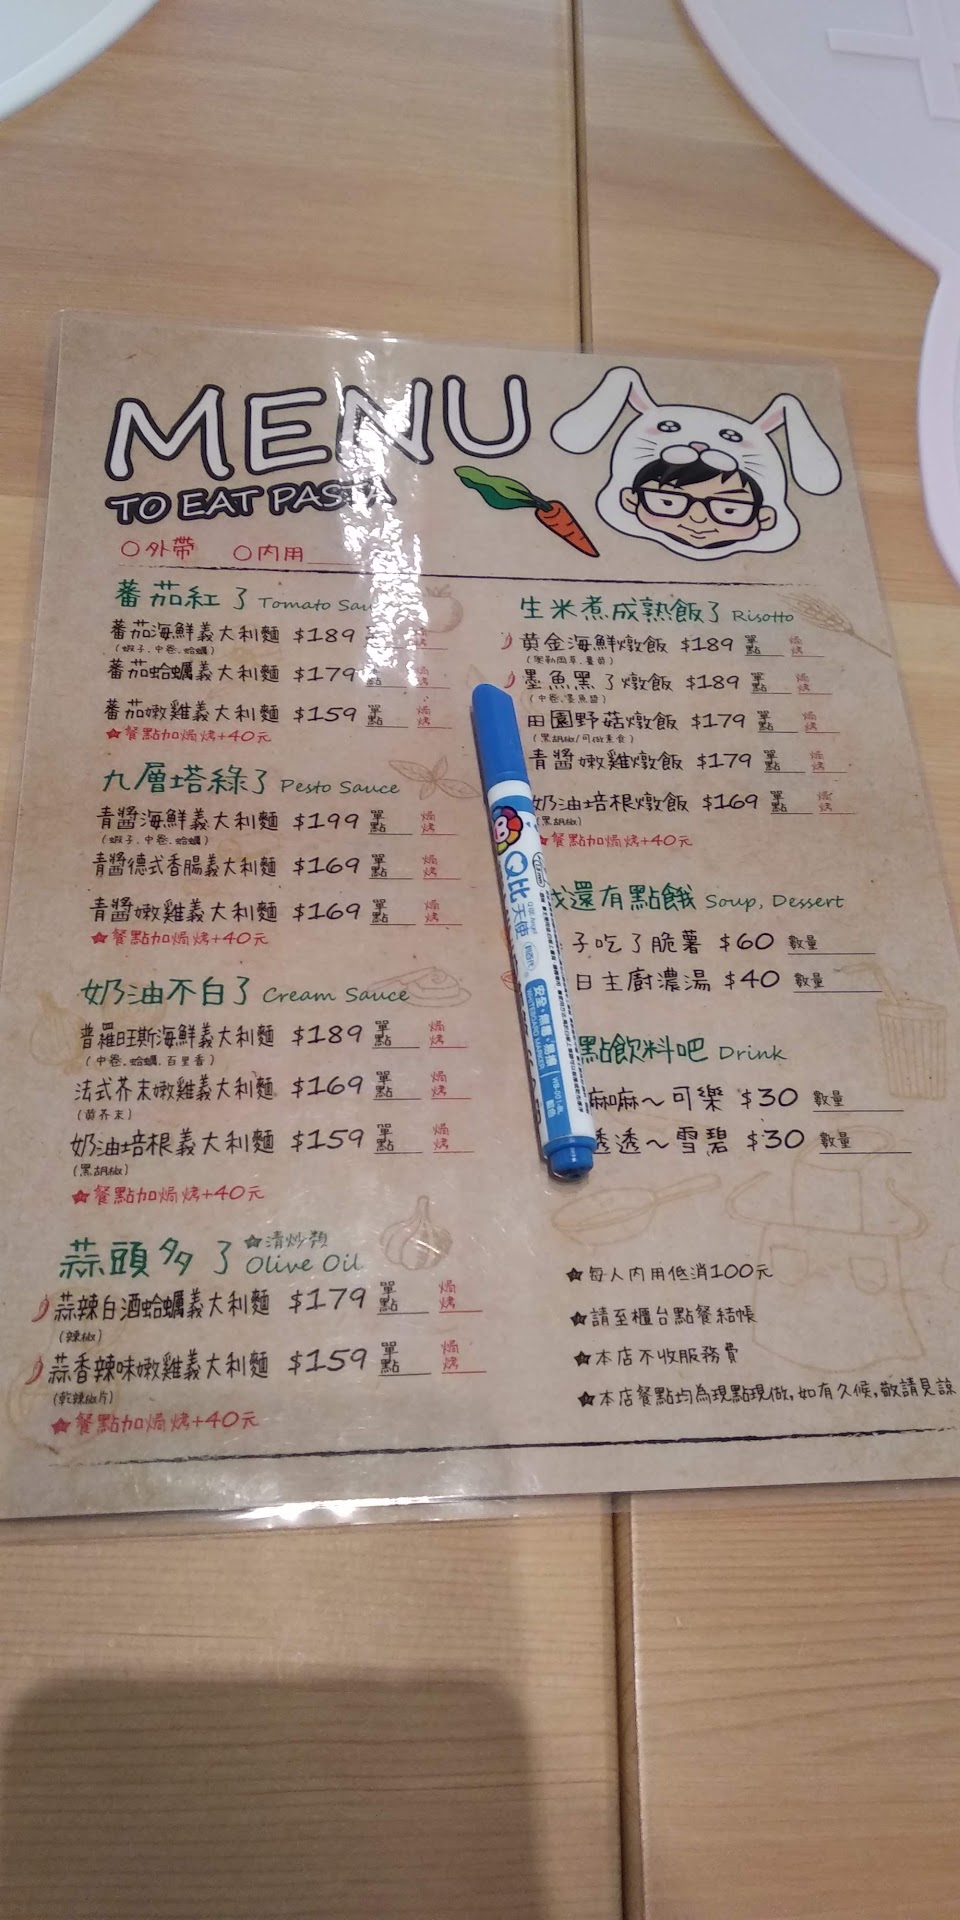 MENU
TO EAT PASTA
○外帶 ○內用
蕃茄紅了 Tomato Sau
蕃茄海鮮義大利麵 $189
(蝦子.中卷.蛤蠣)
蕃茄蛤蠣義大利麵 $179 點
蕃茄嫩雞義大利麵 $159 單點 焗烤
★餐點加焗烤+40元
九層塔綠了 Pesto Sauce
青醬海鮮義大利麵 $199 單點 焗烤
(蝦子.中卷.蛤蠣)
青醬德式香腸義大利麵 $169 單點 焗烤
青醬嫩雞義大利麵 $169 單點 焗烤
★餐點加焗烤+40元
奶油不白了 Cream Sauce
普羅旺斯海鮮義大利麵 $189 單點 焗烤
(中卷.蛤蠣.百里香)
法式芥末嫩雞義大利麵 $169 單點 焗烤
(黃芥末)
奶油培根義大利麵 $159 單點 焗烤
(黑胡椒)
★餐點加焗烤+40元
蒜頭多了 ★清炒類 Olive Oil
蒜辣白酒蛤蠣義大利麵 $179 單點 焗烤
(辣椒)
蒜香辣味嫩雞義大利麵 $159 單點 焗烤
(乾辣椒片)
★餐點加焗烤+40元
生米煮成熟飯了 Risotto
黃金海鮮燉飯 $189 單點 焗烤
墨魚黑了燉飯 $189 單點 焗烤
(中卷.墨魚醬)
田園野菇燉飯 $179 單點 焗烤
(黑胡椒/可做素食)
青醬嫩雞燉飯 $179 單點 焗烤
奶油培根燉飯 $169 單點 焗烤
(黑胡椒)
★餐點加焗烤+40元
還有點餓 Soup, Dessert
子吃了脆薯 $60 數量
日主廚濃湯 $40 數量
點飲料吧 Drink
麻麻~可樂 $30 數量
透透~雪碧 $30 數量
★每人內用低消100元
★請至櫃台點餐結帳
★本店不收服務費
★本店餐點均為現點現做,如有久候,敬請見諒
Q比天使
安全.無毒.易擦
WHITEBOARD MARKER